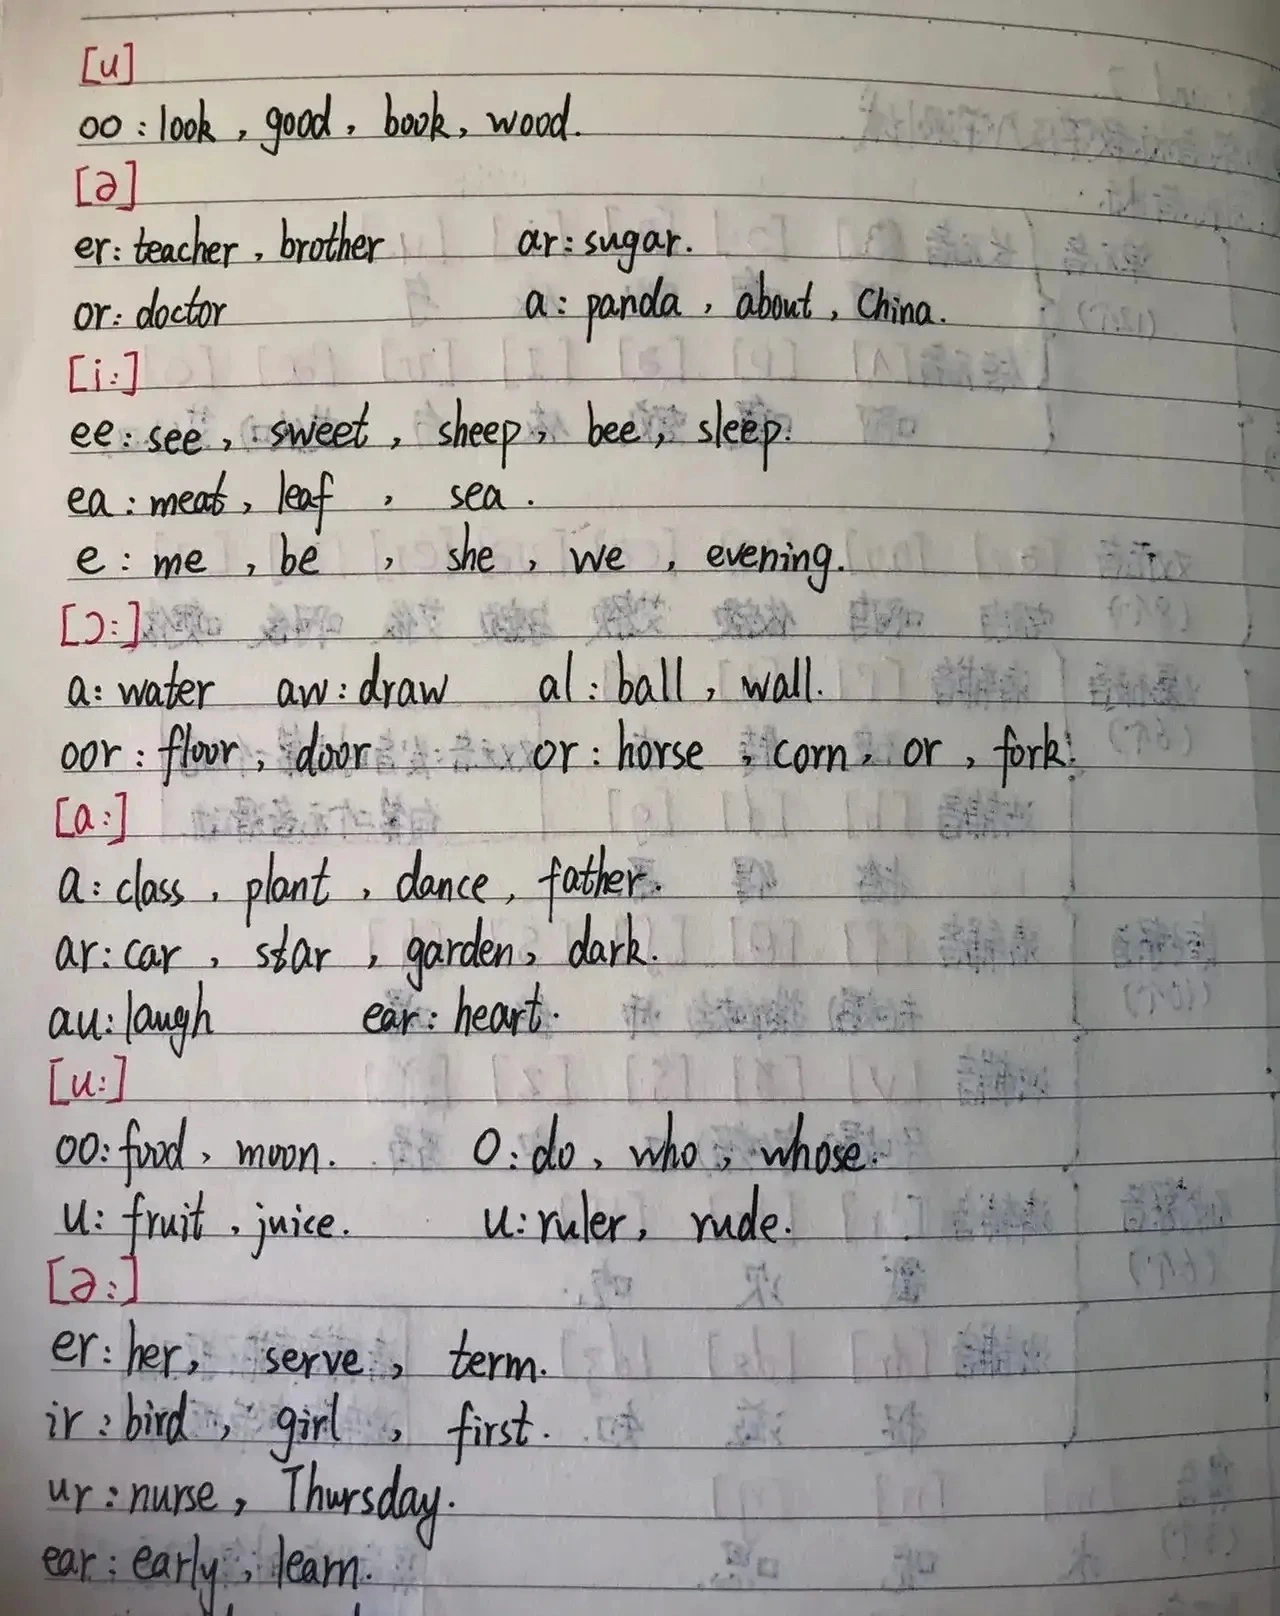 [u]
oo : look , good , book , wood.
[ə]
er: teacher , brother ar: sugar.
or: doctor a: panda , about , China.
[i:]
ee: see , sweet , sheep , bee , sleep.
ea : meat , leaf , sea .
e : me , be , she , we , evening.
[ɔ:]
a: water aw: draw al : ball , wall.
oor : floor , door or : horse , corn , or , fork.
[a:]
a: class , plant , dance , father.
ar: car , star , garden , dark.
au: laugh ear: heart.
[u:]
oo: food , moon. O: do , who , whose.
u: fruit , juice. u: ruler , rude.
[ə:]
er: her, serve , term.
ir : bird , girl , first.
ur : nurse , Thursday.
ear : early , learn.